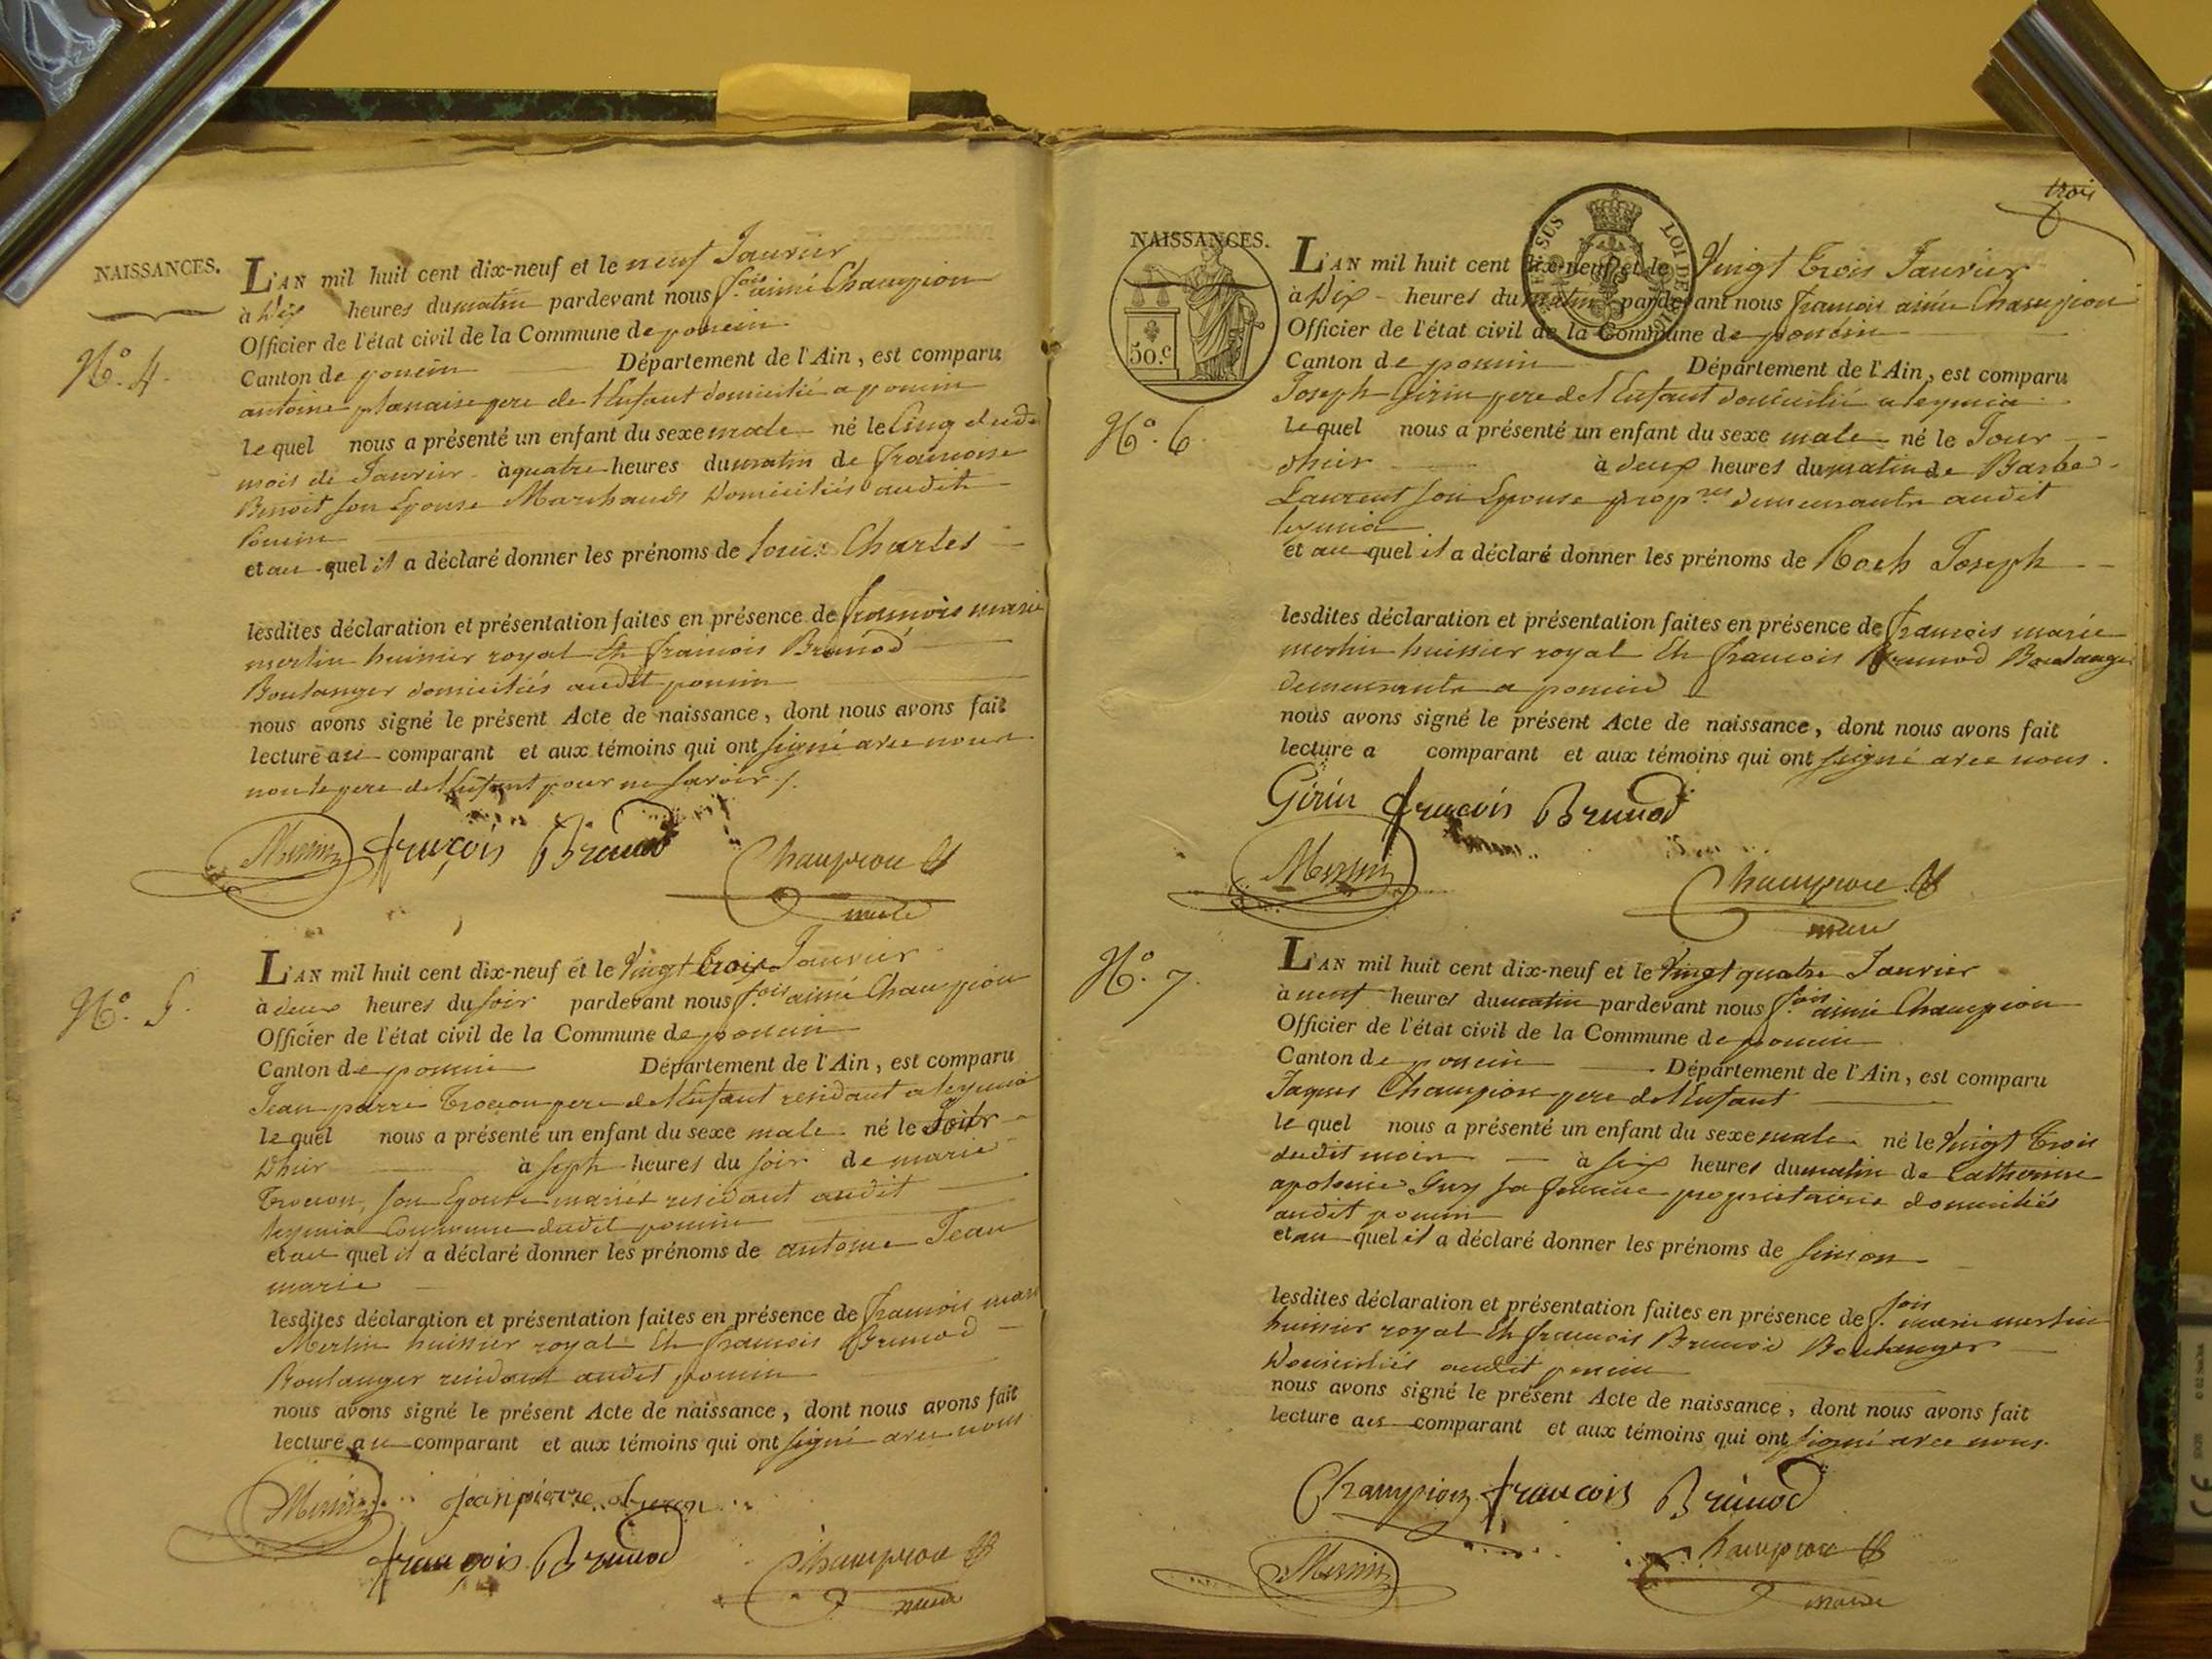 NAISSANCES.
L'AN mil huit cent dix-neuf et le neuf Janvier
à Dix heures du matin pardevant nous f.ois aimé Champion
Officier de l'état civil de la Commune de poncin
N.o 4.
Canton de poncin Département de l'Ain, est comparu
antoine planaise pere de l'Enfant domicilié a poncin
lequel nous a présenté un enfant du sexe male né le Cinq dudt
mois de Janvier à quatre heures du matin de francoise
Benoit son Epouse Marchands Domiciliés audit
Poncin
et au quel il a déclaré donner les prénoms de louis Charles
lesdites déclaration et présentation faites en présence de francois marie
merlin huissier royal Et francois Brunod
Boulanger domiciliés audit poncin
nous avons signé le présent Acte de naissance, dont nous avons fait
lecture au comparant et aux témoins qui ont signé avec nous
non le pere de l'Enfant pour ne savoir /.
Merlin françois Brunod
Champion
maire
L'AN mil huit cent dix-neuf et le Vingt trois Janvier
à deux heures du soir pardevant nous f.ois aimé Champion
N.o 5.
Officier de l'état civil de la Commune de poncin
Canton de poncin Département de l'Ain, est comparu
Jean pierre pere de l'Enfant residant a leymia
lequel nous a présenté un enfant du sexe male né le Jour
Dhier à sept heures du soir de marie
son Epouse mariés residant audit
leymia Commune dudit poncin
et au quel il a déclaré donner les prénoms de antoine Jean
marie
lesdites déclaration et présentation faites en présence de francois marie
Merlin huissier royal Et francois Brunod
Boulanger residant audit poncin
nous avons signé le présent Acte de naissance, dont nous avons fait
lecture au comparant et aux témoins qui ont signé avec nous
Merlin jean pierre
françois Brunod Champion
maire
trois
NAISSANCES.
50.c
L'AN mil huit cent dix-neuf et le Vingt trois Janvier
à Dix heures du matin pardevant nous francois aimé Champion
Officier de l'état civil de la Commune de poncin
Canton de poncin Département de l'Ain, est comparu
Joseph Girin pere de l'Enfant domicilié a leymia
N.o 6.
lequel nous a présenté un enfant du sexe male né le Jour
dhier à deux heures du matin de Barbe
Laurent son Epouse prop.res demeurants audit
leymia
et au quel il a déclaré donner les prénoms de Roch Joseph
lesdites déclaration et présentation faites en présence de francois marie
merlin huissier royal Et francois Brunod Boulanger
demeurants a poncin
nous avons signé le présent Acte de naissance, dont nous avons fait
lecture a comparant et aux témoins qui ont signé avec nous.
Girin françois Brunod
Merlin
Champion
maire
N.o 7.
L'AN mil huit cent dix-neuf et le Vingt quatre Janvier
à neuf heures du matin pardevant nous f.ois aimé Champion
Officier de l'état civil de la Commune de poncin
Canton de poncin Département de l'Ain, est comparu
Jaques Champion pere de l'Enfant
lequel nous a présenté un enfant du sexe male né le Vingt trois
dudit mois à six heures du matin de Catherine
apolonie Guy sa femme proprietaires domiciliés
audit poncin
et au quel il a déclaré donner les prénoms de simon
lesdites déclaration et présentation faites en présence de f.ois marie merlin
huissier royal Et francois Brunod Boulanger
Domiciliés audit poncin
nous avons signé le présent Acte de naissance, dont nous avons fait
lecture au comparant et aux témoins qui ont signé avec nous.
Champion francois Brunod
Merlin Champion
maire